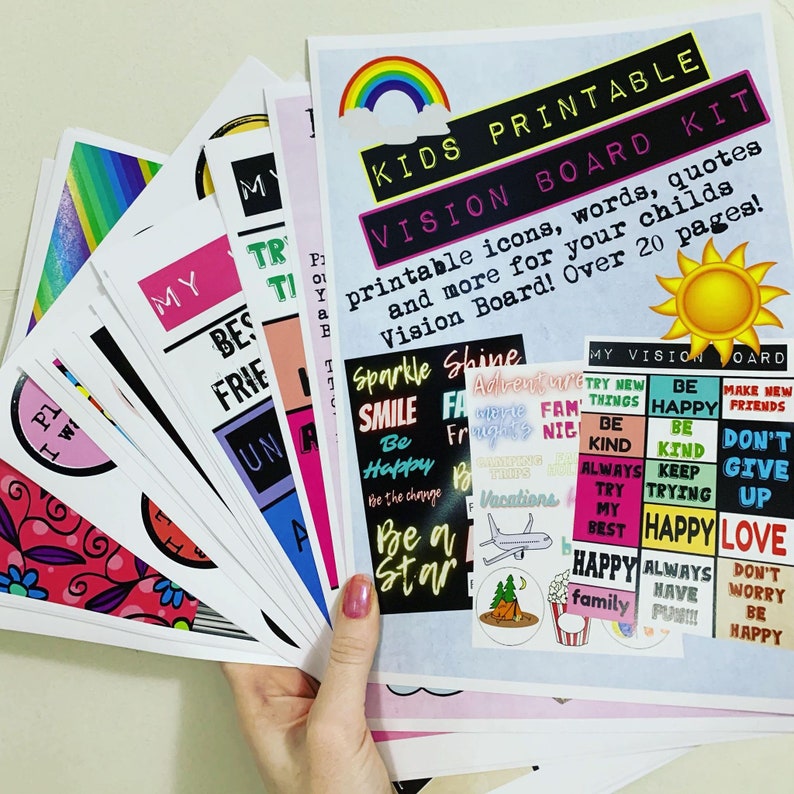 KIDS PRINTABLE
VISION BOARD KIT
printable icons, words, quotes
and more for your childs
Vision Board! Over 20 pages!
Sparkle
Shine
SMILE
Be
Happy
Be the change
Be a
Star
Adventure
movie
nights
FAM
NIGH
CAMPING
TRIPS
Vacations
MY VISION BOARD
TRY NEW
THINGS
BE
HAPPY
MAKE NEW
FRIENDS
BE
KIND
BE
KIND
DON'T
GIVE
UP
ALWAYS
TRY
MY
BEST
KEEP
TRYING
HAPPY
LOVE
HAPPY
family
ALWAYS
HAVE
FUN!!!
DON'T
WORRY
BE
HAPPY
MY
TRY
THIN
MY
BES
FRIEN
UN